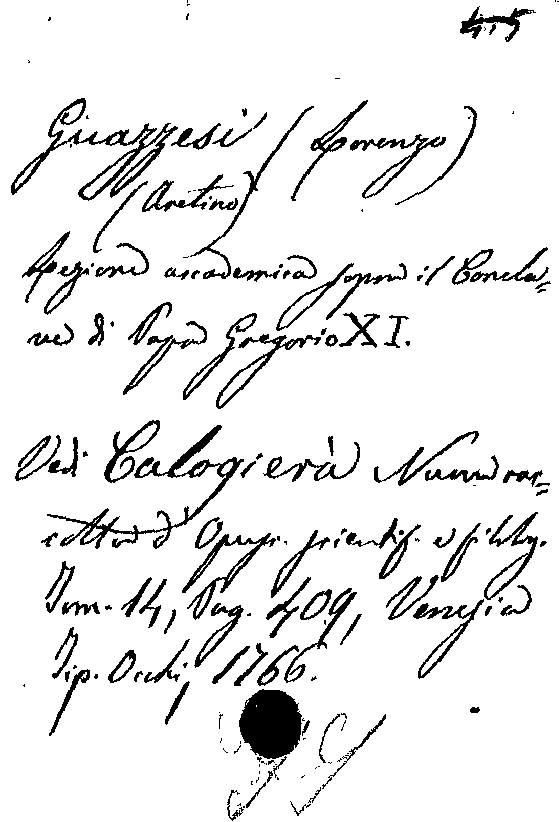 Guazzesi (Lorenzo)
(Aretino)
Lezione accademica sopra il Concla=
ve di Papa Gregorio XI.
Vedi Calogierà Nuova rac=
colta d' Opusc. scientif. e filolog.
Tom. 14, Pag. 409, Venezia
Tip. Occhi, 1766.